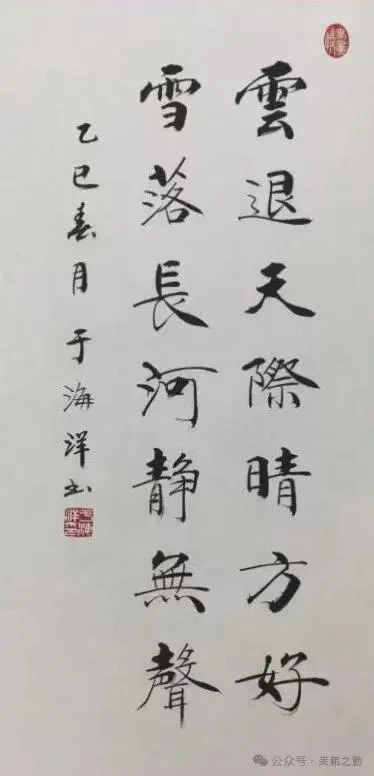 雲退天際晴方好
雪落長河静無聲
乙巳春月于海洋书
公众号·耒耜之勤